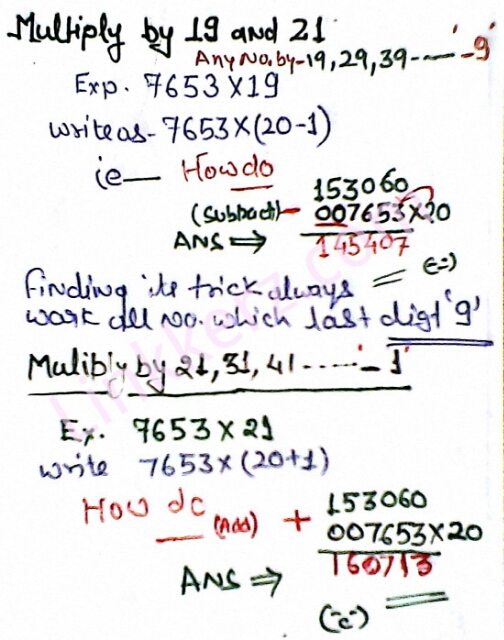 Multiply by 19 and 21
Any No. by-19,29,39-----'-9'
Exp. 7653×19
write as- 7653×(20-1)
ie— How do
153060
(Subtract)- 007653×20
ANS ⇒ 145407
finding ite trick always
work all No. which last digt '9'
Mulibly by 21, 31, 41 -----'-1'
Ex. 7653×21
write 7653×(20+1)
How dc (Add) + 153060
007653×20
160713
ANS ⇒